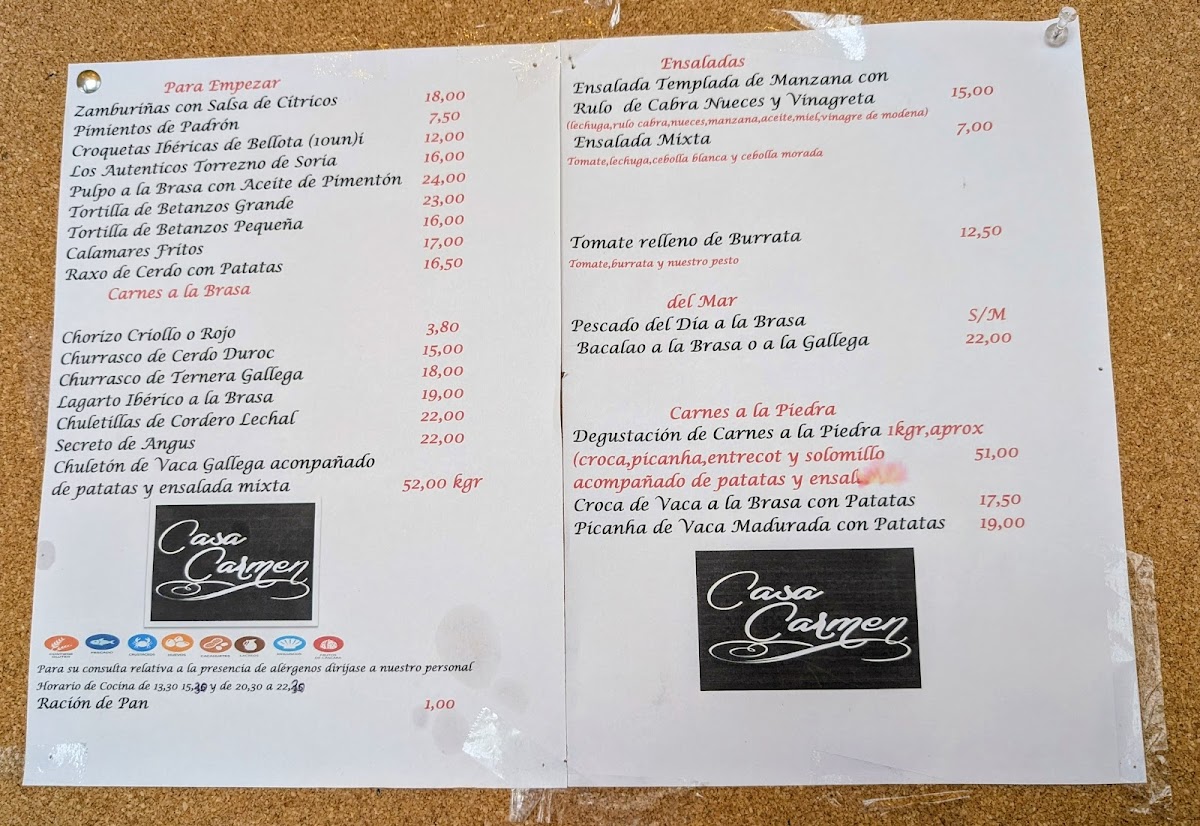 Para Empezar
Zamburiñas con Salsa de Cítricos 18,00
Pimientos de Padrón 7,50
Croquetas Ibéricas de Bellota (10un)i 12,00
Los Autenticos Torrezno de Soria 16,00
Pulpo a la Brasa con Aceite de Pimentón 24,00
Tortilla de Betanzos Grande 23,00
Tortilla de Betanzos Pequeña 16,00
Calamares Fritos 17,00
Raxo de Cerdo con Patatas 16,50
Carnes a la Brasa
Chorizo Criollo o Rojo 3,80
Churrasco de Cerdo Duroc 15,00
Churrasco de Ternera Gallega 18,00
Lagarto Ibérico a la Brasa 19,00
Chuletillas de Cordero Lechal 22,00
Secreto de Angus 22,00
Chuletón de Vaca Gallega aconpañado
de patatas y ensalada mixta 52,00 kgr
Casa
Carmen
Para su consulta relativa a la presencia de alérgenos dirijase a nuestro personal
Horario de Cocina de 13,30 15,30 y de 20,30 a 22,30
Ración de Pan 1,00
Ensaladas
Ensalada Templada de Manzana con
Rulo de Cabra Nueces y Vinagreta 15,00
(lechuga,rulo cabra,nueces,manzana,aceite,miel,vinagre de modena)
Ensalada Mixta 7,00
Tomate,lechuga,cebolla blanca y cebolla morada
Tomate relleno de Burrata 12,50
Tomate,burrata y nuestro pesto
del Mar
Pescado del Día a la Brasa S/M
Bacalao a la Brasa o a la Gallega 22,00
Carnes a la Piedra
Degustación de Carnes a la Piedra 1kgr,aprox
(croca,picanha,entrecot y solomillo 51,00
acompañado de patatas y ensal
Croca de Vaca a la Brasa con Patatas 17,50
Picanha de Vaca Madurada con Patatas 19,00
Casa
Carmen